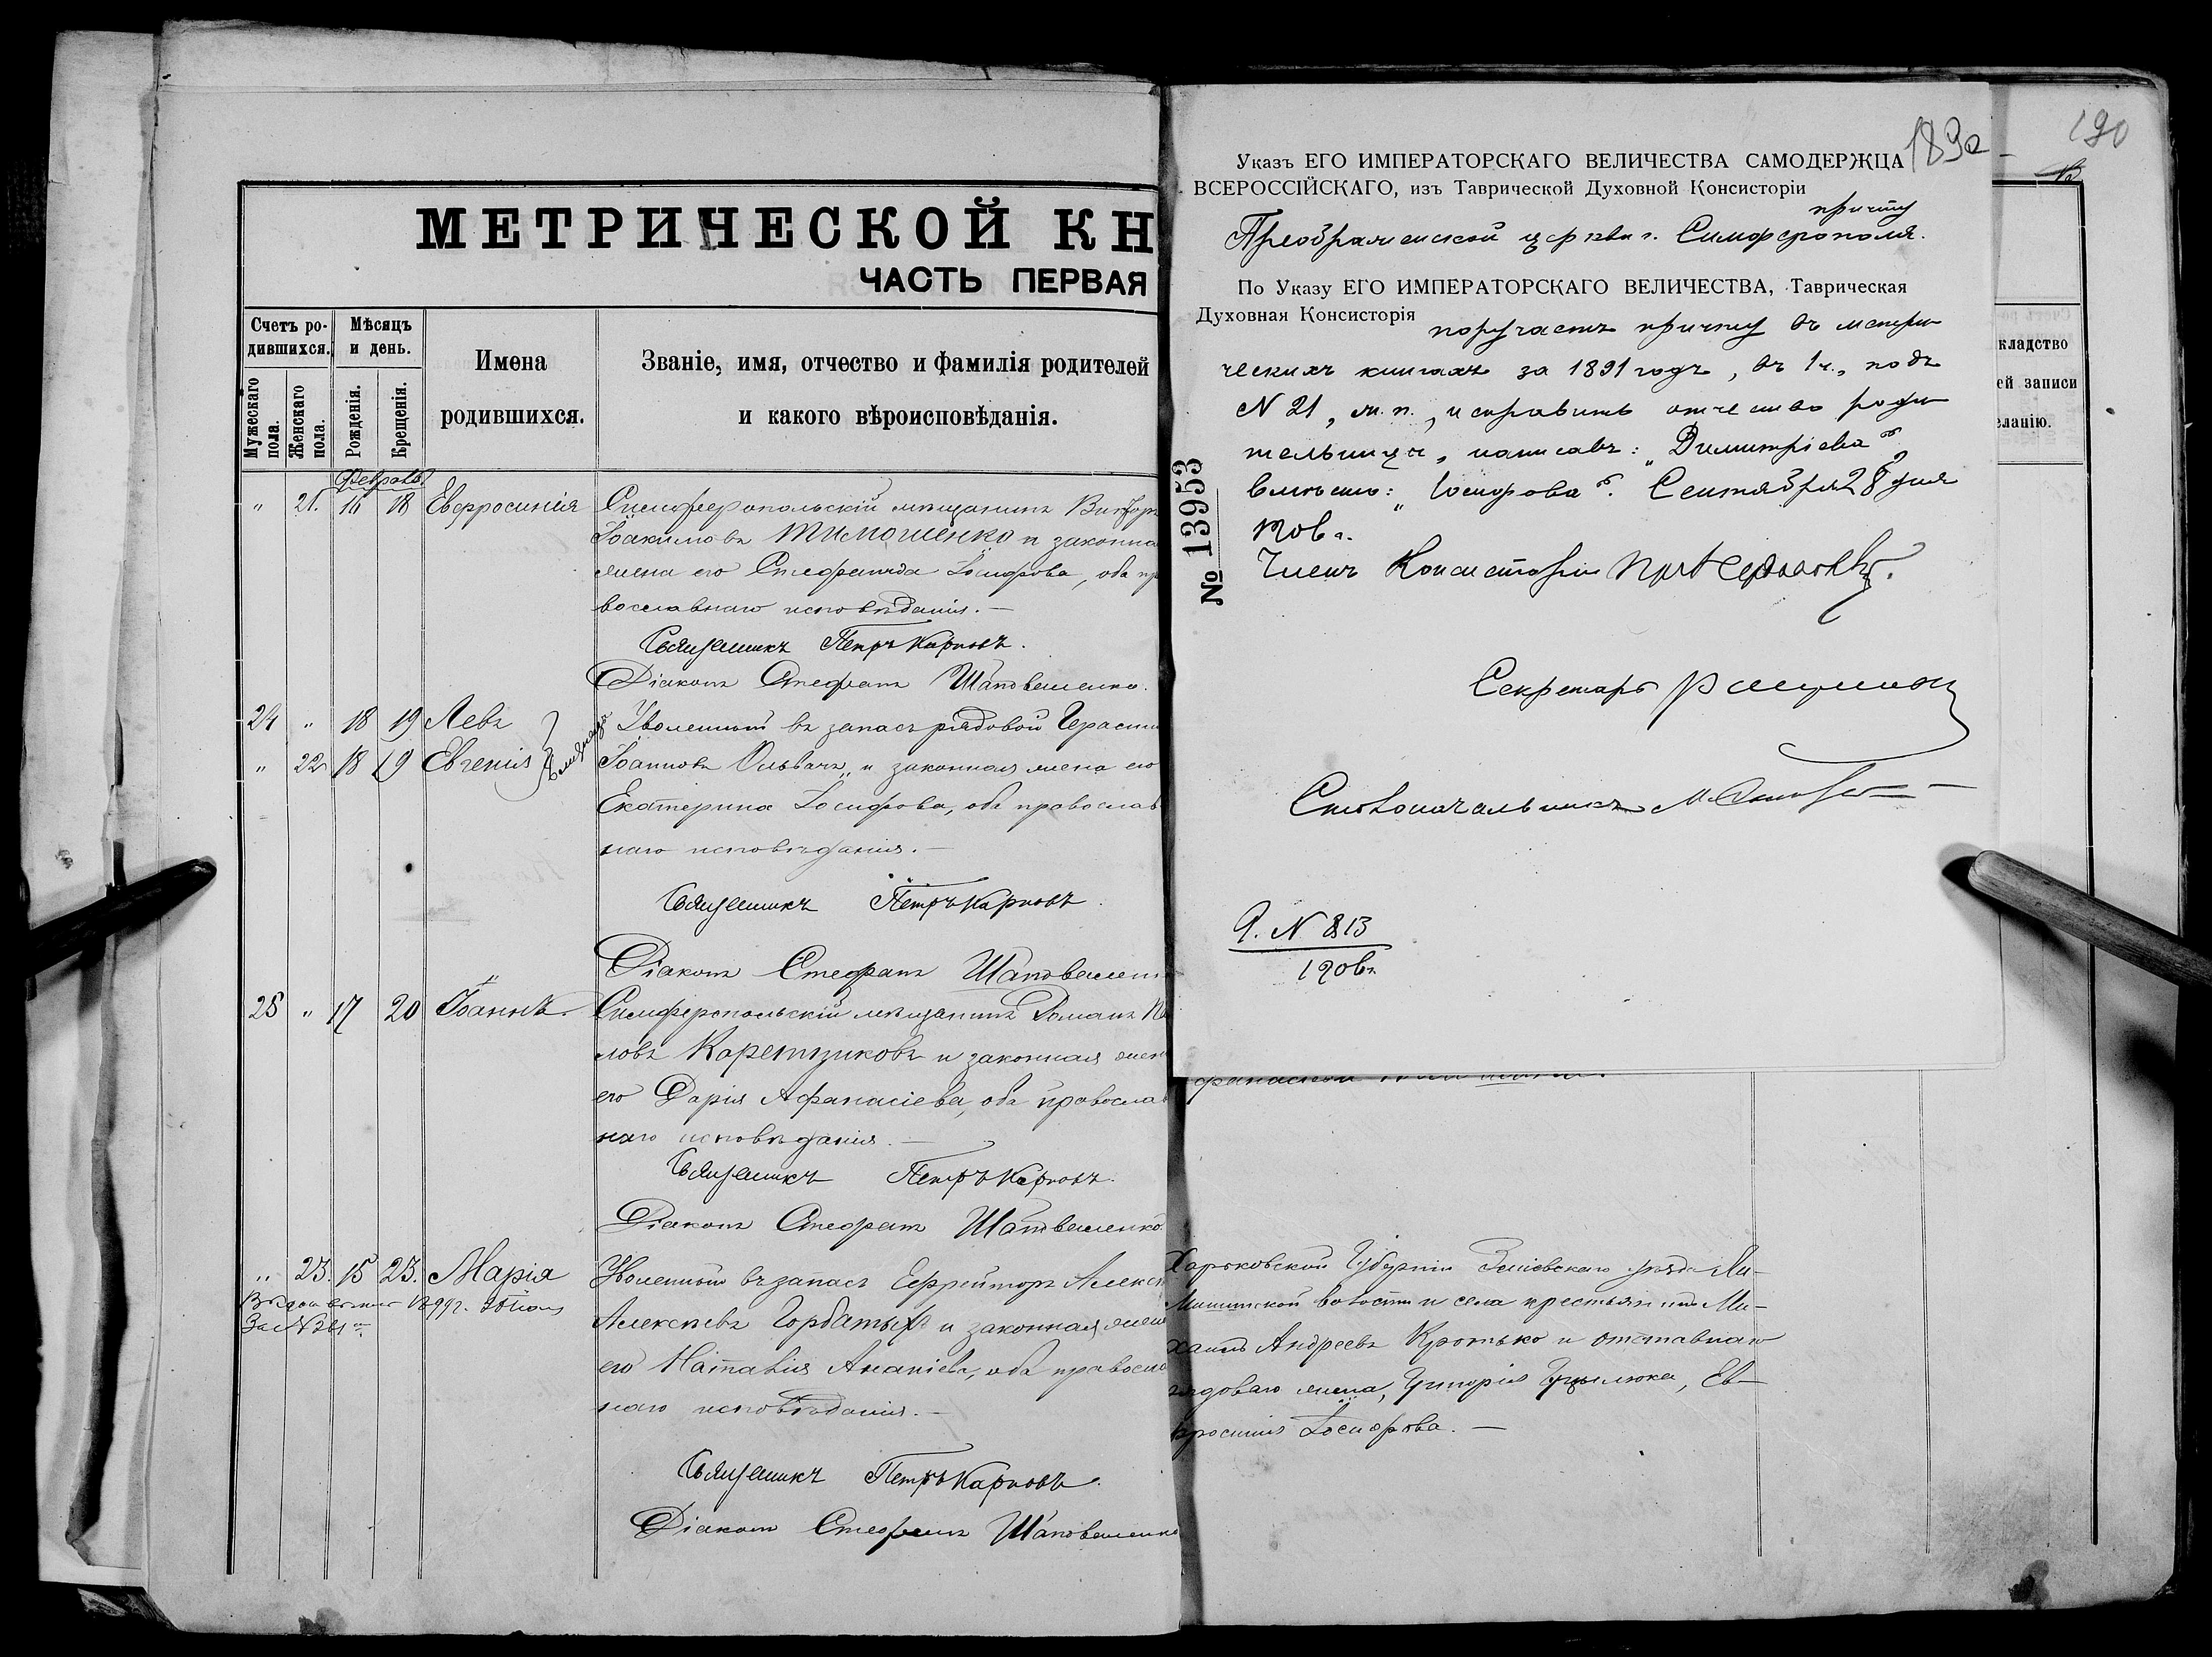 МЕТРИЧЕСКОЙ КН
ЧАСТЬ ПЕРВАЯ
Счетъ ро-
дившихся.
Мѣсяцъ
и день.
Мужескаго
пола.
Женскаго
пола.
Рожденія.
Крещенія.
Имена
родившихся.
Званіе, имя, отчество и фамилія родителей
и какого вѣроисповѣданія.
Февраль
" 21. 16 18 Евфросинія
Симферопольскій мѣщанинъ Викторъ
Іоакимовъ Тимошенко и законная
жена его Стефанида Іосифова, оба пр
вославнаго исповѣданія. —
Священникъ Петръ Карповъ.
Діаконъ Стефанъ Шаповаленко.
24 " 18 19 Левъ
" 22 18 19 Евгенія
близнецы
Уволенный въ запасъ рядовой Герасим
Іоанновъ и законная жена его
Екатерина Іосифова, оба православ
наго исповѣданія. —
Священникъ Петръ Карповъ.
Діаконъ Стефанъ Шаповален
25 " 17 20 Іоаннъ
Симферопольскій мѣщанинъ Романъ
ловъ Каретниковъ и законная жен
его Дарія Афанасіева, оба православ
наго исповѣданія. —
Священникъ Петръ Карповъ.
Діаконъ Стефанъ Шаповаленко
" 23. 15 23. Марія
1899г.
За №
Уволенный въ запасъ Ефрейторъ Алекс
Алексѣевъ Горбатых и законная жен
его Наталія Ананіева, оба правосла
наго исповѣданія. —
Священникъ Петръ Карповъ.
Діаконъ Стефанъ Шаповаленко
189а
190
Указъ ЕГО ИМПЕРАТОРСКАГО ВЕЛИЧЕСТВА САМОДЕРЖЦА
ВСЕРОССІЙСКАГО, изъ Таврической Духовной Консисторіи
причту
Преображенской церкви г. Симферополя.
По Указу ЕГО ИМПЕРАТОРСКАГО ВЕЛИЧЕСТВА, Таврическая
Духовная Консисторія поручаетъ причту въ метри
ческихъ книгахъ за 1891 годъ, въ 1 ч., подъ
N 21, ж. п., исправить отчество роди
тельницы, написавъ: „Димитріева"
вмѣсто: „Іосифова". Сентября 28 дня
190 г.
№ 13953
Членъ Консисторіи
Секретарь
Столоначальникъ
N 813
1906г.
кладство
ей записи
еланію.
Харьковской Губерніи Зміевскаго уѣзда Ли-
волости и села крестьянинъ Ми-
хаилъ Андреевъ Кротько и отставнаго
рядоваго жена, Григорія Ев-
фросинія Іосифова. —